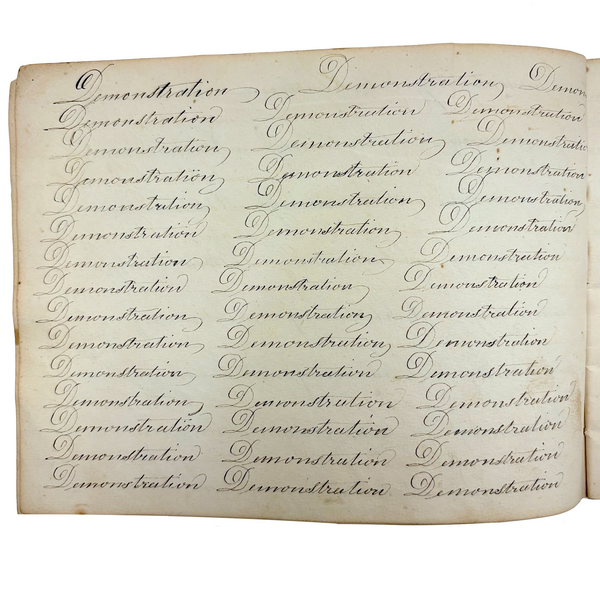 Demonstration Demonstration Demon
Demonstration Demonstration Demonstration
Demonstration Demonstration Demonstratio
Demonstration Demonstration Demonstration
Demonstration Demonstration Demonstration
Demonstration Demonstration Demonstration
Demonstration Demonstration Demonstration
Demonstration Demonstration Demonstration
Demonstration Demonstration Demonstration
Demonstration Demonstration Demonstration
Demonstration Demonstration Demonstration
Demonstration Demonstration Demonstration
Demonstration Demonstration Demonstration
Demonstration Demonstration Demonstration
Demonstration Demonstration Demonstration